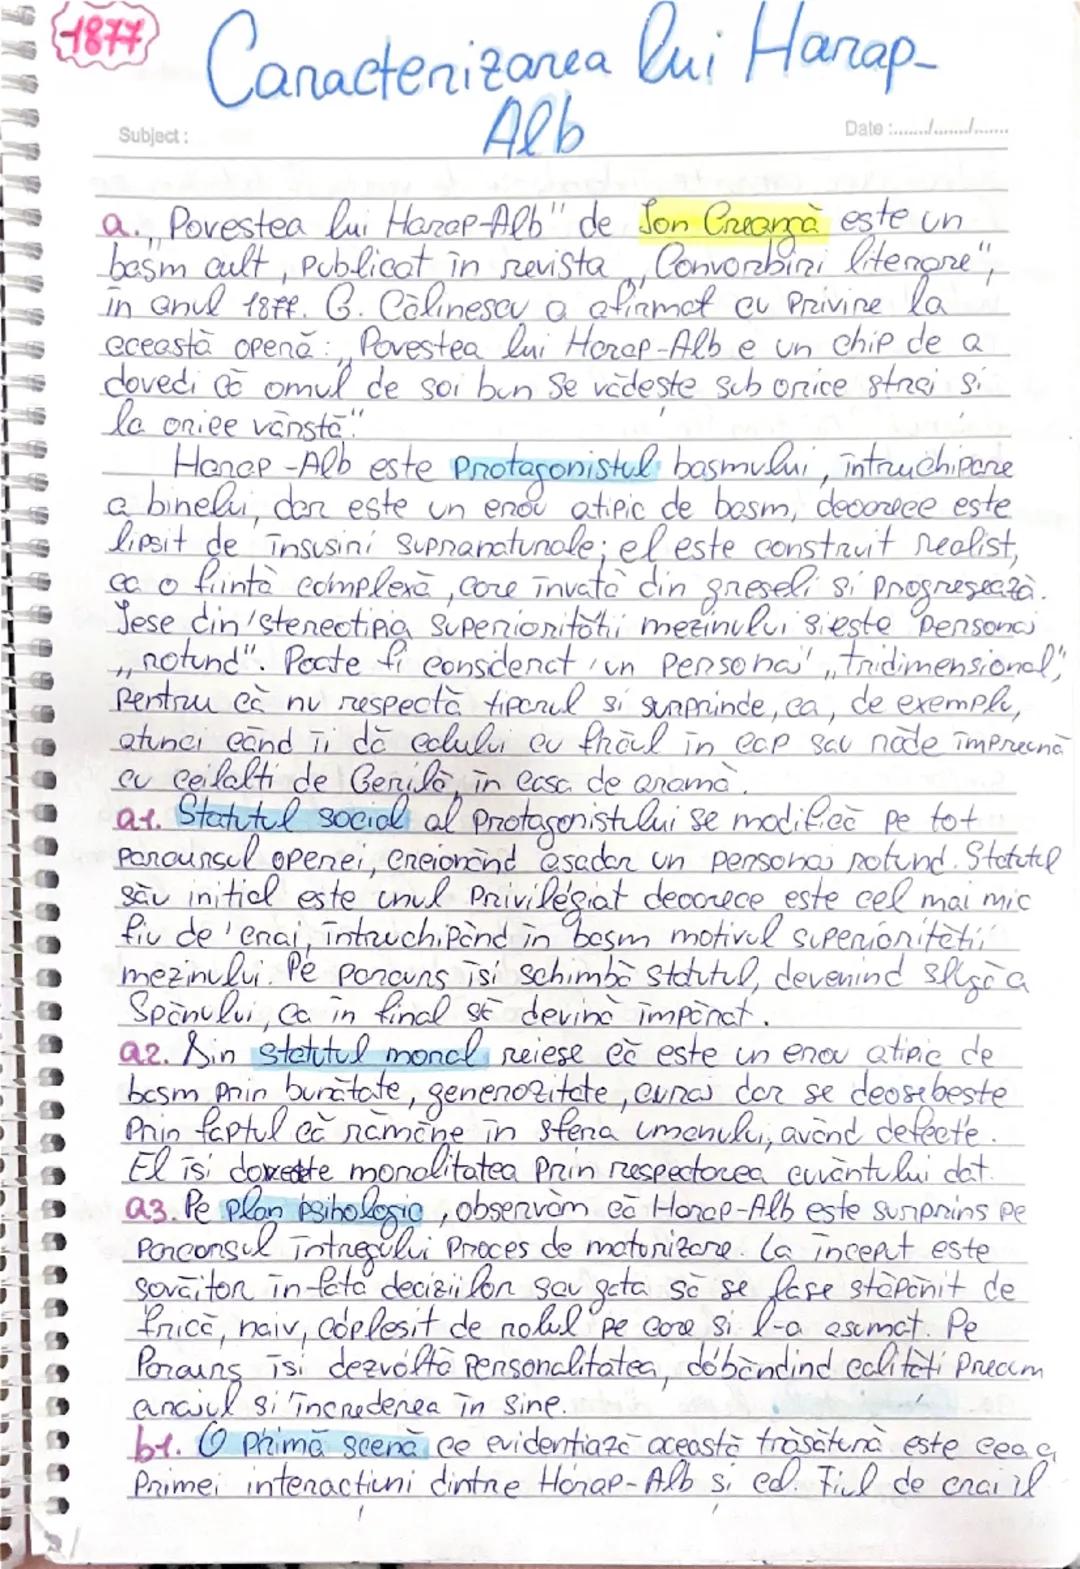 1877
Caracterizarea lui Harap-
Alb
Subject :
Date :......../......../........
a. „Povestea lui Harap-Alb" de Ion Creangă este un
basm cult, publicat în revista „Convorbiri literare",
în anul 1877. G. Călinescu a afirmat cu privire la
această operă: „Povestea lui Harap-Alb e un chip de a
dovedi că omul de soi bun se vădește sub orice strai și
la oriee vârstă".
Harap-Alb este protagonistul basmului, întruchipare
a binelui, dar este un erou atipic de basm, deoarece este
lipsit de însușiri supranaturale; el este construit realist,
ca o ființă complexă, care învață din greșeli și progresează.
Iese din stereotipia superiorității mezinului și este personaj
„rotund". Poate fi considerat un personaj „tridimensional",
pentru că nu respectă tiparul și surprinde, ca, de exemplu,
atunci când îi dă calului cu frâul în cap sau râde împreună
cu ceilalți de Gerilă, în casa de aramă.
a1. Statutul social al protagonistului se modifică pe tot
parcursul operei, creionând așadar un personaj rotund. Statutul
său inițial este unul privilegiat deoarece este cel mai mic
fiu de crai, întruchipând în basm motivul superiorității
mezinului. Pe parcurs își schimbă statutul, devenind slugă a
Spânului, ca în final să devină împărat.
a2. Din statutul moral reiese că este un erou atipic de
basm prin bunătate, generozitate, curaj dar se deosebește
prin faptul că rămâne în sfera umanului, având defecte.
El își dovedește moralitatea prin respectarea cuvântului dat.
a3. Pe plan psihologic, observăm că Harap-Alb este surprins pe
parconsul întregului proces de maturizare. La început este
șovăitor în fața deciziilor sau gata să se lase stăpânit de
frică, naiv, copleșit de rolul pe care și l-a asumat. Pe
parcurs își dezvoltă personalitatea, dobândind calități precum
curajul și încrederea în sine.
b1. O primă scenă ce evidențiază această trăsătură este ceea a
primei interacțiuni dintre Harap-Alb și cal. Fiul de crai îl